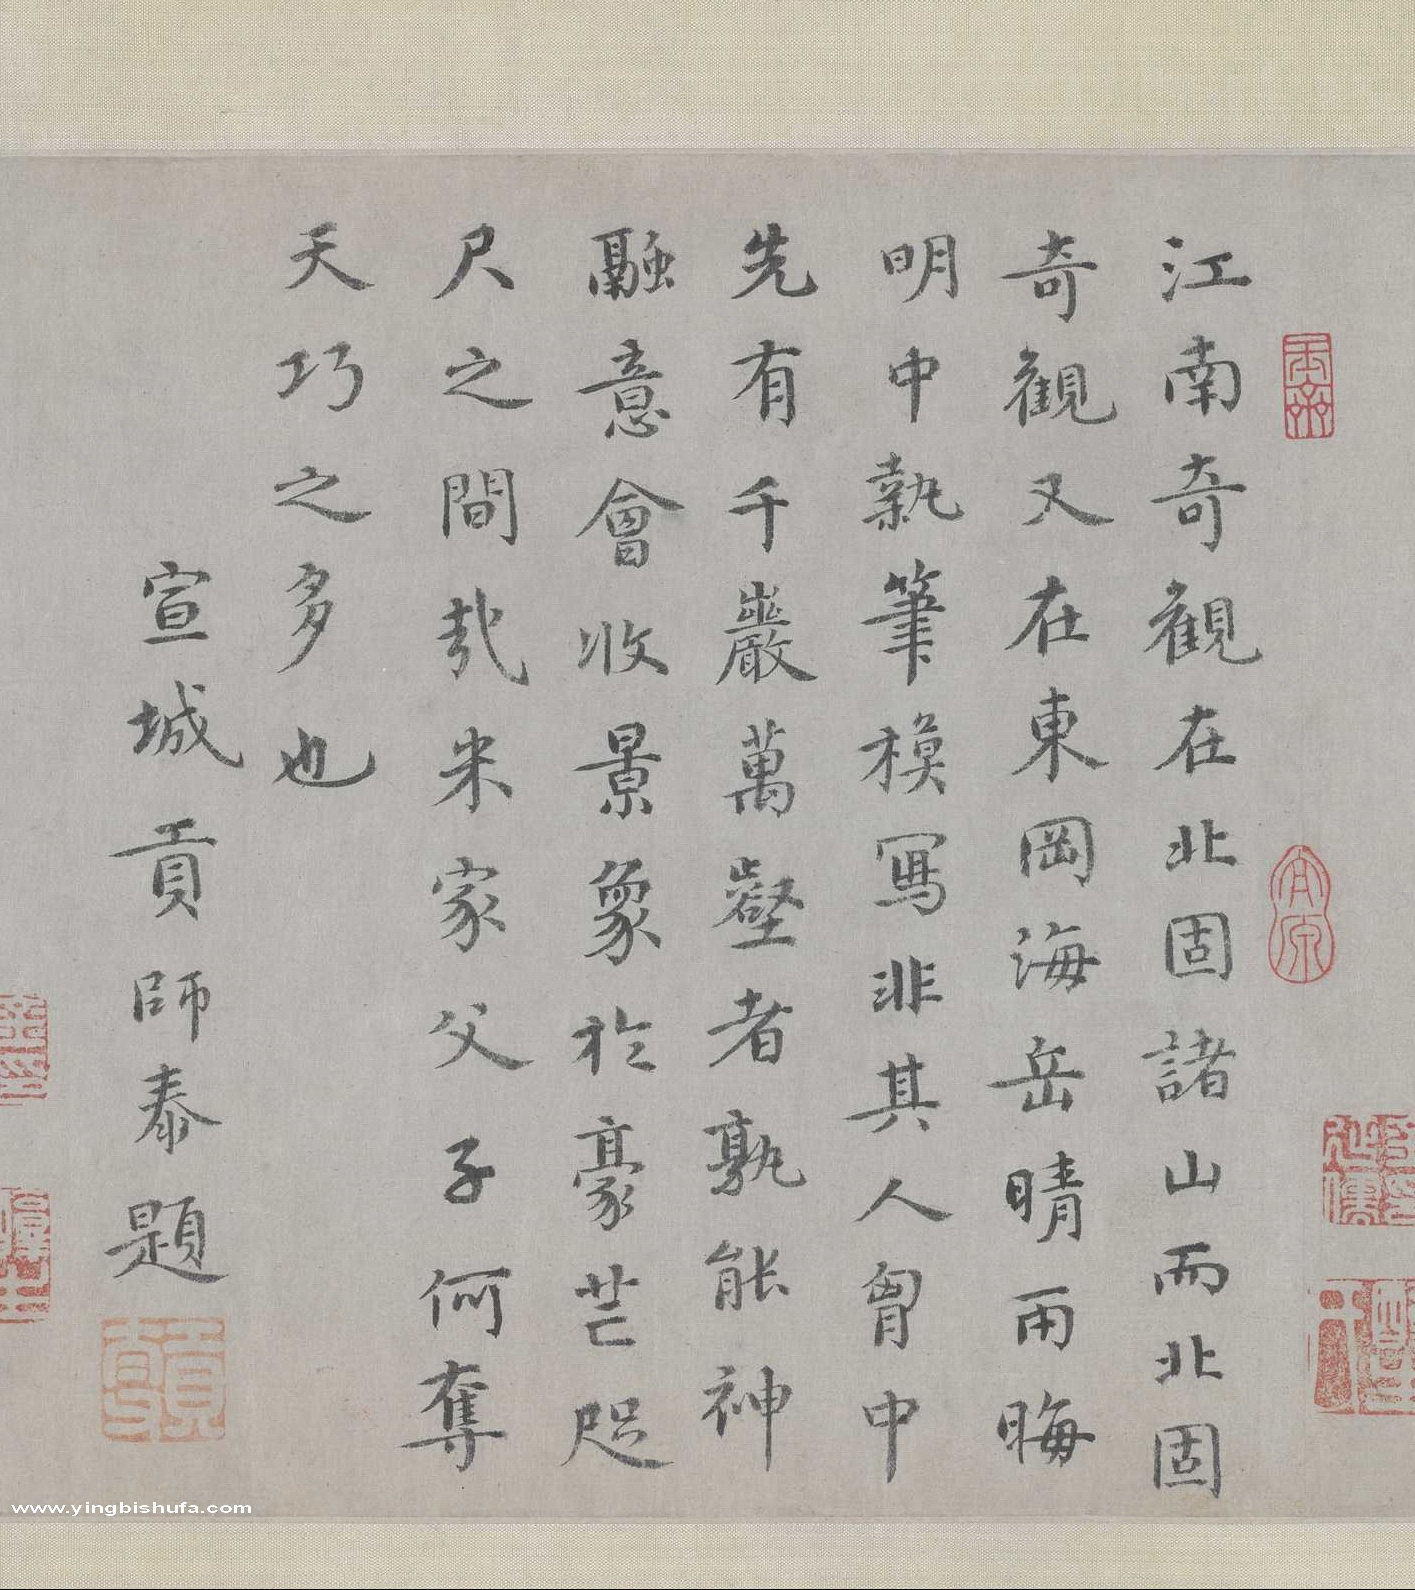 江南奇觀在北固諸山而北固
奇觀又在東岡海岳晴雨晦
明中執筆模寫非其人胷中
先有千巖萬壑者孰能神
融意會收景象於豪芒咫
尺之間哉米家父子何奪
天巧之多也
宣城貢師泰題
www.yingbishufa.com